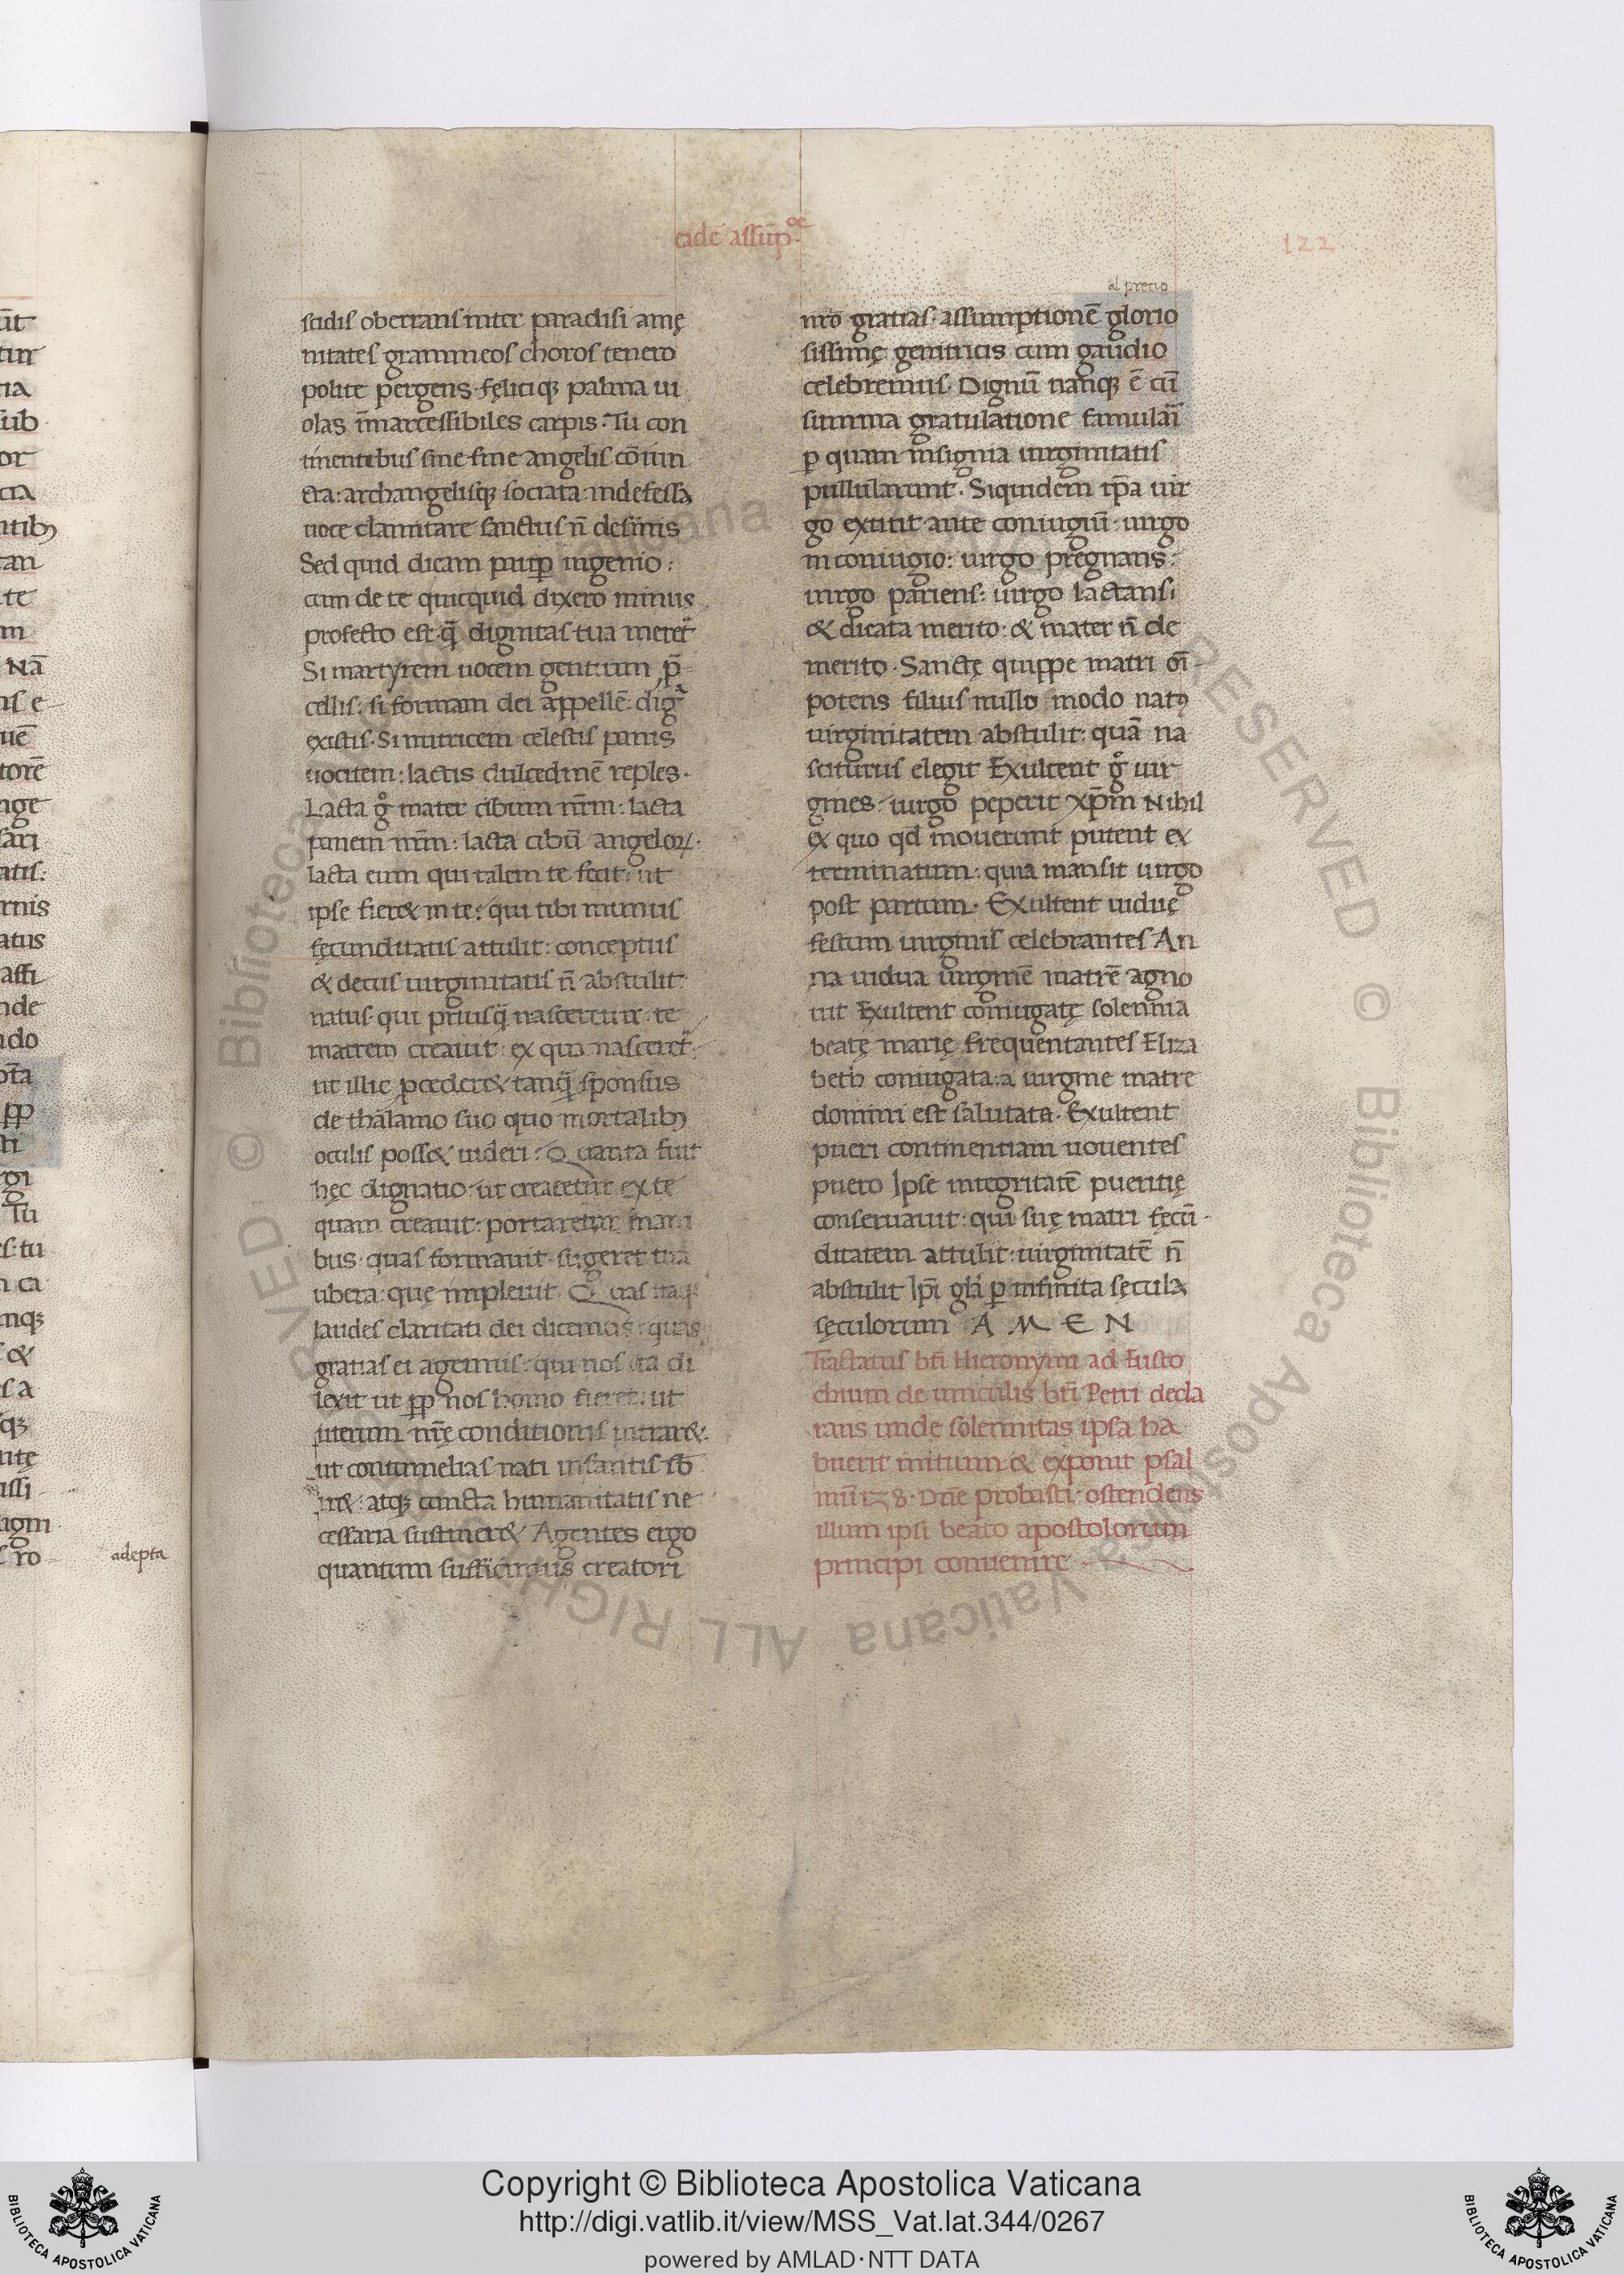 eidē assūpᵒᵉ
122
al precio
scidis oberrans inter paradisi amę
nitates gramineos choros tenero
polite pergens· fęliciq; palma ui
olas īmarcessibiles carpis· Tu con
tinentibus sine fine angelis cōiun
cta: archangelisq; sociata: indefessa
uoce clamitare sanctus n̄ desinis
Sed quid dicam ꝑuiꝑ ingenio:
cum de te quicquid dixero minus
profecto est· q̄ dignitas tua meret̄
Si martyrem uocem gentium p̄
cellis: si formam dei appellē: digᵃ
existis· Si nutricem celestis panis
uocitem: lactis dulcedinē reples·
Lacta gͦ mater cibum nr̄m: lacta
panem nr̄m: lacta cibū angeloꝝ·
lacta eum qui talem te fecit: ut
ipse fier& in te: qui tibi munus
fęcunditatis attulit: conceptus
& decus uirginitatis n̄ abstulit
natus· qui priusq̄ nasceretur te
matrem creauit: ex qua nasceret̄
ut illic ꝓceder& tanq̄ sponsus
de thalamo suo quo mortalibꝰ
oculis poss& uideri: Quanta fuit
hęc dignatio: ut crearetur ex te
quam creauit: portaretur mani
bus· quas formauit· sugeret tua
ubera: quę impleuit· Quas itaq;
laudes claritati dei dicemus: quas
gratias ei agemus: qui nos ita di
lexit ut ꝓp nos homo fieret: ut
uterum nr̄ę conditionis intrar&·
ut contumelias nati infantis sb̄
ir&: atq; cuncta humanitatis ne
cessaria sustiner& Agentes ergo
quantum sufficimus creatori
nr̄o gratias· assumptionē glorio
sissimę genitricis cum gaudio
celebremus· Dignū nanq; ē cū
summa gratulatione famulari
ꝑ quam insignia uirginitatis
pullularunt· Siquidem ip̄a uir
go extitit ante coniugiū· uirgo
in coniugio: uirgo pregnans:
uirgo pariens: uirgo lactans:
& dicata merito: & mater n̄ de
merito· Sanctę quippe matri oī
potens filius nullo modo natꝰ
uirginitatem abstulit: quā na
sciturus elegit Exultent gͦ uir
gines· uirgo peperit xp̄m Nihil
ex quo qd mouerunt putent ex
terminatum: quia mansit uirgo
post partum· Exultent uiduę
festum uirginis celebrantes An
na uidua uirginē matrē agno
uit Exultent coniugatę solennia
beatę marię frequentantes Eliza
beth coniugata: a uirgine matre
domini est salutata· Exultent
pueri continentiam uouentes
puero Ipse integritatē pueritię
conseruauit: qui suę matri fęcū
ditatem attulit: uirginitatē n̄
abstulit Ipi glā ꝑ infinita sęcula
sęculorum A M E N
Tractatus bt̄i Hieronymi ad Eusto
chium de uinculis bt̄i Petri decla
rans unde solennitas ipsa ha
buerit initium & exponit psal
mū 138· Dn̄e probasti· ostendens
illum ipsi beato apostolorum
principi conuenire
adepta
Copyright © Biblioteca Apostolica Vaticana
http://digi.vatlib.it/view/MSS_Vat.lat.344/0267
powered by AMLAD·NTT DATA
BIBLIOTECA APOSTOLICA VATICANA
BIBLIOTECA APOSTOLICA VATICANA